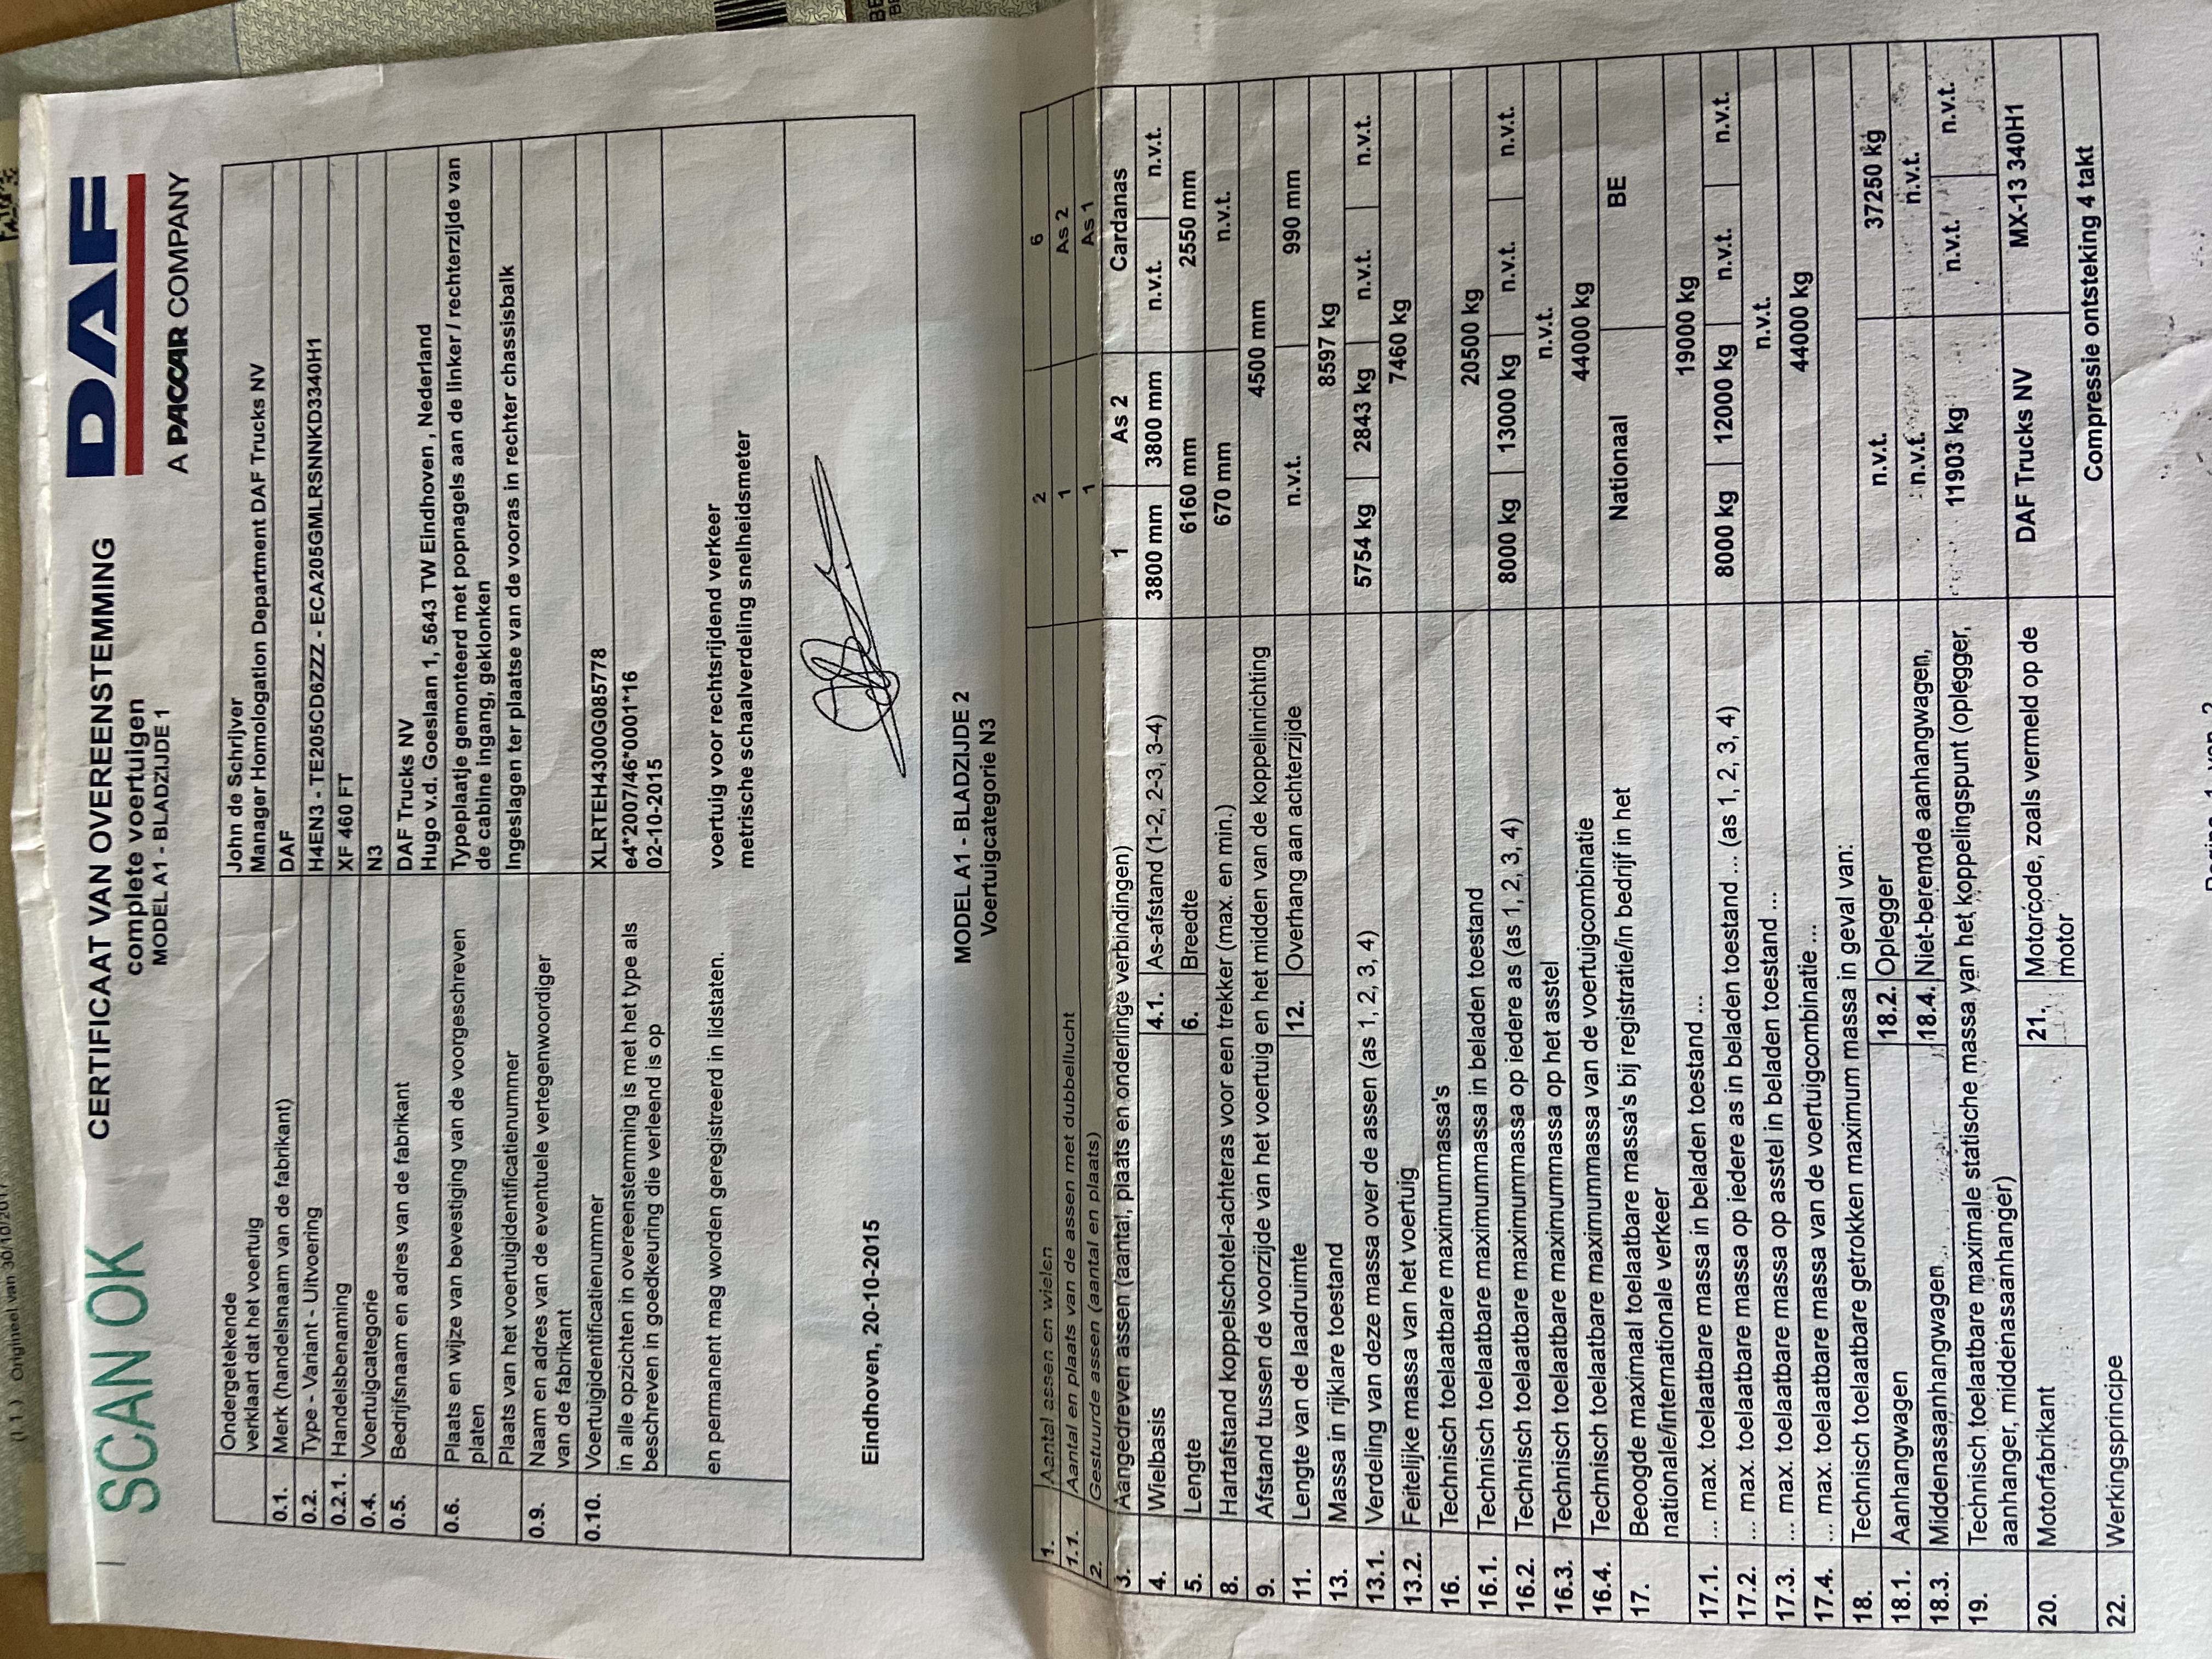 (1.1.) Origineel van 30/10/201
SCAN OK
CERTIFICAAT VAN OVEREENSTEMMING
complete voertuigen
MODEL A1 - BLADZIJDE 1
DAF
A PACCAR COMPANY
Ondergetekende John de Schrijver
verklaart dat het voertuig Manager Homologation Department DAF Trucks NV
0.1. Merk (handelsnaam van de fabrikant) DAF
0.2. Type - Variant - Uitvoering H4EN3 - TE205CD6ZZZ - ECA205GMLRSNNKD3340H1
0.2.1. Handelsbenaming XF 460 FT
0.4. Voertuigcategorie N3
0.5. Bedrijfsnaam en adres van de fabrikant DAF Trucks NV
Hugo v.d. Goeslaan 1, 5643 TW Eindhoven , Nederland
0.6. Plaats en wijze van bevestiging van de voorgeschreven Typeplaatje gemonteerd met popnagels aan de linker / rechterzijde van
platen de cabine ingang, geklonken
Plaats van het voertuigidentificatienummer Ingeslagen ter plaatse van de vooras in rechter chassisbalk
0.9. Naam en adres van de eventuele vertegenwoordiger
van de fabrikant
0.10. Voertuigidentificatienummer XLRTEH4300G085778
in alle opzichten in overeenstemming is met het type als e4*2007/46*0001*16
beschreven in goedkeuring die verleend is op 02-10-2015
en permanent mag worden geregistreerd in lidstaten. voertuig voor rechtsrijdend verkeer
metrische schaalverdeling snelheidsmeter
Eindhoven, 20-10-2015
MODEL A1 - BLADZIJDE 2
Voertuigcategorie N3
1. Aantal assen en wielen 2 6
1.1. Aantal en plaats van de assen met dubbellucht 1 As 2
2. Gestuurde assen (aantal en plaats) 1 As 1
3. Aangedreven assen (aantal, plaats en onderlinge verbindingen) 1 As 2 Cardanas
4. Wielbasis 4.1. As-afstand (1-2, 2-3, 3-4) 3800 mm 3800 mm n.v.t. n.v.t.
5. Lengte 6. Breedte 6160 mm 2550 mm
8. Hartafstand koppelschotel-achteras voor een trekker (max. en min.) 670 mm n.v.t.
9. Afstand tussen de voorzijde van het voertuig en het midden van de koppelinrichting 4500 mm
11. Lengte van de laadruimte 12. Overhang aan achterzijde n.v.t. 990 mm
13. Massa in rijklare toestand 8597 kg
13.1. Verdeling van deze massa over de assen (as 1, 2, 3, 4) 5754 kg 2843 kg n.v.t. n.v.t.
13.2. Feitelijke massa van het voertuig 7460 kg
16. Technisch toelaatbare maximummassa's
16.1. Technisch toelaatbare maximummassa in beladen toestand 20500 kg
16.2. Technisch toelaatbare maximummassa op iedere as (as 1, 2, 3, 4) 8000 kg 13000 kg n.v.t. n.v.t.
16.3. Technisch toelaatbare maximummassa op het asstel n.v.t.
16.4. Technisch toelaatbare maximummassa van de voertuigcombinatie 44000 kg
17. Beoogde maximaal toelaatbare massa's bij registratie/in bedrijf in het Nationaal BE
nationale/internationale verkeer
17.1. ... max. toelaatbare massa in beladen toestand ... 19000 kg
17.2. ... max. toelaatbare massa op iedere as in beladen toestand ... (as 1, 2, 3, 4) 8000 kg 12000 kg n.v.t. n.v.t.
17.3. ... max. toelaatbare massa op asstel in beladen toestand ... n.v.t.
17.4. ... max. toelaatbare massa van de voertuigcombinatie ... 44000 kg
18. Technisch toelaatbare getrokken maximum massa in geval van:
18.1. Aanhangwagen 18.2. Oplegger n.v.t. 37250 kg
18.3. Middenasaanhangwagen 18.4. Niet-beremde aanhangwagen, n.v.t. n.v.t.
19. Technisch toelaatbare maximale statische massa van het koppelingspunt (oplegger, 11903 kg n.v.t. n.v.t.
aanhanger, middenasaanhanger)
20. Motorfabrikant 21. Motorcode, zoals vermeld op de DAF Trucks NV MX-13 340H1
motor
22. Werkingsprincipe Compressie ontsteking 4 takt